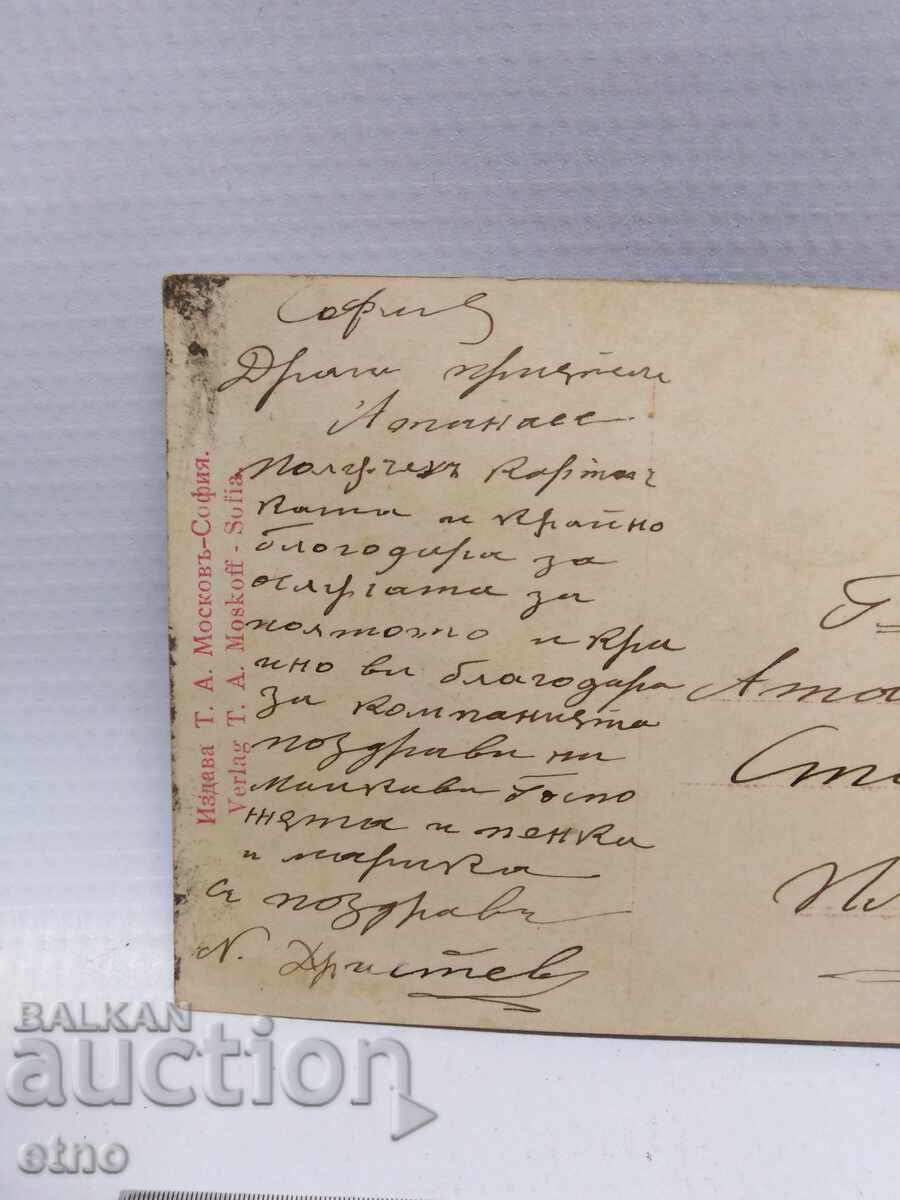 София
Драги приятелю
Атанасе
Получихъ картич
ката и крайно
благодаря за
услугата за
която то и кра
ино ви благодаря
за компанията
поздрави на
майкави Госпо
жата и пенка
и марика
Съ поздравъ
N. Христевъ
Издава Т. А. Московъ-София.
Verlag T. A. Moskoff - Sofia.
Г
Ата
Ста
Пл
BALKAN
auction
etno